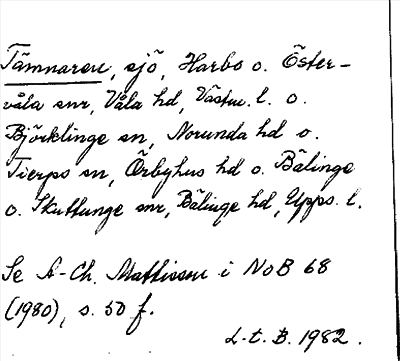 Tämnaren, sjö, Harbo o. Öster-
våla snr, Våla hd, Västm. l. o.
Björklinge sn, Norunda hd o.
Tierps sn, Örbyhus hd o. Bälinge
o. Skuttunge snr, Bälinge hd, Upps. l.
Se A-Ch. Mattisson i NoB 68
(1980), s. 50 f.
L.t.B. 1982.